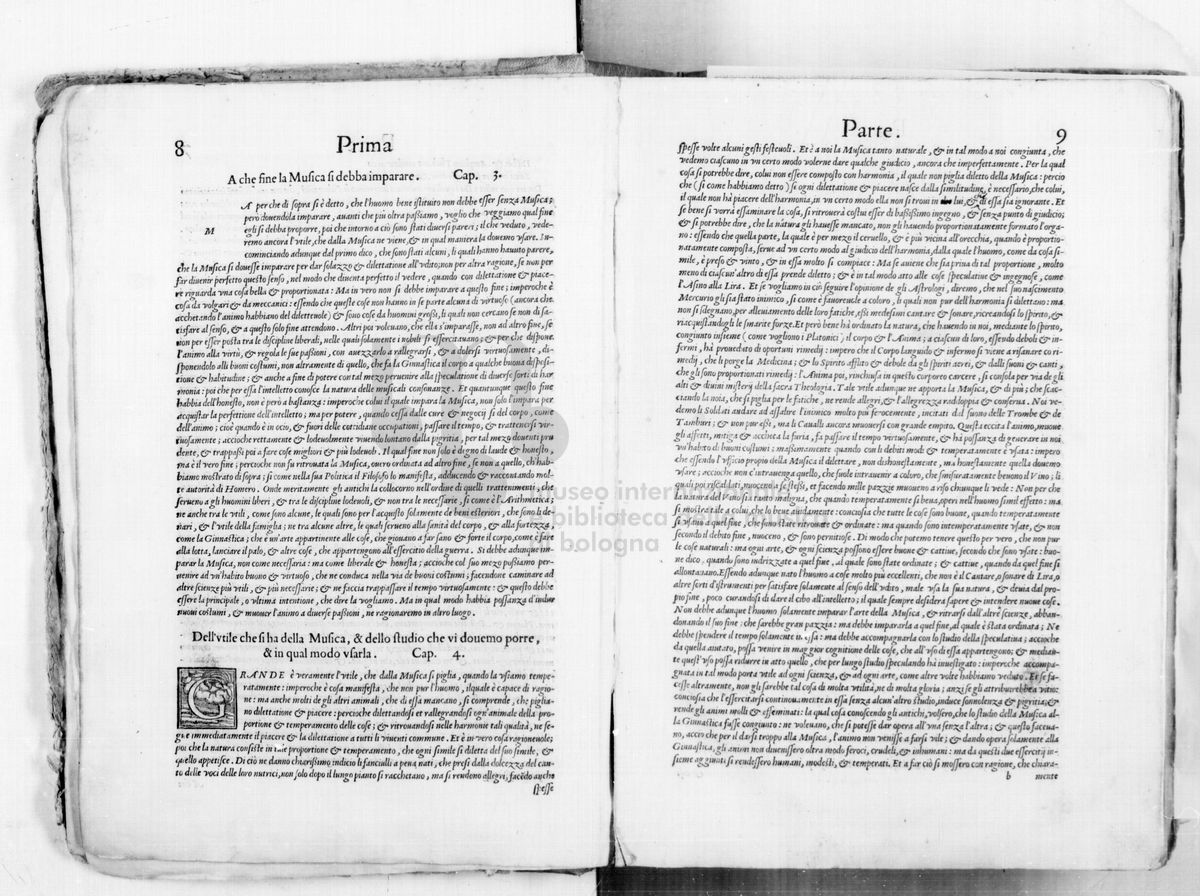 8
Prima
A che fine la Musica si debba imparare. Cap. 3.
M
A per che di sopra si è detto, che l'huomo bene istituito non debbe esser senza Musica;
però douendola imparare, auanti che più oltra passiamo, voglio che veggiamo qual fine
egli si debba proporre, poi che intorno a ciò sono stati diuersi pareri; il che veduto, vede-
remo ancora l'vtile, che dalla Musica ne viene, & in qual maniera la douemo vsare. In-
cominciando adunque dal primo dico, che sono stati alcuni, li quali hanno hauuto parere,
che la Musica si douesse imparare per dar solazzo & dilettatione all'vdito; non per altra ragione, se non per
far diuenir perfetto questo senso, nel modo che diuenta perfetto il vedere, quando con dilettatione & piace-
re riguarda vna cosa bella & proportionata: Ma in vero non si debbe imparare a questo fine; imperoche è
cosa da volgari & da mecanici: essendo che queste cose non hanno in se parte alcuna di virtuoso (ancora che
acchetando l'animo habbiano del diletteuole) & sono cose da huomini grossi, li quali non cercano se non di sa-
tisfare al senso, & a questo solo fine attendono. Altri poi voleuano, che ella s'imparasse, non ad altro fine, se
non per esser posta tra le discipline liberali, nelle quali solamente i nobili si essercitauano; & per che dispone
l'animo alla virtù, & regola le sue passioni, con auezzarlo a rallegrarsi, & a dolersi virtuosamente, di-
sponendolo alli buoni costumi, non altramente di quello, che fa la Ginnastica il corpo a qualche buona disposi-
tione & habitudine; & anche a fine di potere con tal mezo peruenire alla speculatione di diuerse sorti di har
monia: poi che per essa l'intelletto conosce la natura delle musicali consonanze. Et quantunque questo fine
habbia dell'honesto, non è però a bastanza: imperoche colui il quale impara la Musica, non solo l'impara per
acquistar la perfettione dell'intelletto; ma per potere, quando cessa dalle cure & negocij si del corpo, come
dell'animo; cioè quando è in ocio, & fuori delle cotidiane occupationi, passare il tempo, & trattenersi vir-
tuosamente; accioche rettamente & lodeuolmente viuendo lontano dalla pigritia, per tal mezo douenti pru
dente, & trappassi poi a fare cose migliori & più lodeuoli. Il qual fine non solo è degno di laude & honesto,
ma è il vero fine; percioche non fu ritrouata la Musica, ouero ordinata ad altro fine, se non a quello, ch'hab-
biamo mostrato di sopra; si come nella sua Politica il Filosofo lo manifesta, adducendo & raccontando mol-
te autorità di Homero. Onde meritamente gli antichi la collocorno nell'ordine di quelli trattenimenti, che
serueno a gli huomini liberi, & tra le discipline lodeuoli, & non tra le necessarie, si come è l'Arithmetica;
ne anche tra le vtili, come sono alcune, le quali sono per l'acquisto solamente de beni esteriori, che sono li de-
nari, & l'vtile della famiglia; ne tra alcune altre, le quali serueno alla sanità del corpo, & alla fortezza,
come la Ginnastica; che è vn'arte appartinente alle cose, che giouano a far sano & forte il corpo, come è fare
alla lotta, lanciare il palo, & altre cose, che appartengono all'essercitio della guerra. Si debbe adunque im-
parar la Musica, non come necessaria: ma come liberale & honesta; accioche col suo mezo possiamo per-
uenire ad vn'habito buono & virtuoso, che ne conduca nella via de buoni costumi; facendone caminare ad
altre scienze più vtili, & più necessarie; & ne faccia trappassare il tempo virtuosamente: & questo debbe
essere la principale, o vltima intentione, che dire la vogliamo. Ma in qual modo habbia possanza d'indur
nuoui costumi, & muouer l'animo a diuerse passioni, ne ragionaremo in altro luogo.
Dell'vtile che si ha della Musica, & dello studio che vi douemo porre,
& in qual modo vsarla. Cap. 4.
GRANDE è veramente l'vtile, che dalla Musica si piglia, quando la vsiamo tempe-
ratamente: imperoche è cosa manifesta, che non pur l'huomo, il quale è capace di ragio-
ne: ma anche molti de gli altri animali, che di essa mancano, si comprende, che piglia-
no dilettatione & piacere: percioche dilettandosi et rallegrandosi ogn'animale della pro-
portione & temperamento delle cose; & ritrouandosi nelle harmonie tali qualità, ne se-
gue immediatamente il piacere & la dilettatione a tutti li viuenti commune. Et è in vero cosa ragioneuole;
poi che la natura consiste in tale proportione & temperamento, che ogni simile si diletta del suo simile, &
quello appetisce. Di ciò ne danno chiarissimo indicio li fanciulli a pena nati, che presi dalla dolcezza del can-
to delle voci delle loro nutrici, non solo dopo il lungo pianto si racchetano, ma si rendeno allegri, facẽdo ancho
spesse
Parte.
9
spesse volte alcuni gesti festeuoli. Et è a noi la Musica tanto naturale, & in tal modo a noi congiunta, che
vedemo ciascuno in vn certo modo volerne dare qualche giudicio, ancora che imperfettamente. Per la qual
cosa si potrebbe dire, colui non essere composto con harmonia, il quale non piglia diletto della Musica: percio
che (si come habbiamo detto) si ogni dilettatione & piacere nasce dalla similitudine, è necessario, che colui,
il quale non hà piacere dell'harmonia, in vn certo modo ella non si troui in lui, & di essa sia ignorante. Et
se bene si vorrà essaminare la cosa, si ritrouerà costui esser di bassissimo ingegno, & senza punto di giudicio;
& si potrebbe dire, che la natura gli hauesse mancato, non gli hauendo proportionatamente formato l'orga-
no: essendo che quella parte, la quale è per mezo il ceruello, & è più vicina all'orecchia, quando è proportio-
natamente composta, serue ad vn certo modo al giudicio dell'harmonia, dalla quale l'huomo, come da cosa si-
mile, è preso & vinto, & in essa molto si compiace: Ma se auiene che sia priua di tal proportione, molto
meno di ciascun'altro di essa prende diletto; & è in tal modo atto alle cose speculatiue & ingegnose, come
l'Asino alla Lira. Et se vogliamo in ciò seguire l'opinione de gli Astrologi, diremo, che nel suo nascimento
Mercurio gli sia stato inimico, si come è fauoreuole a coloro, li quali non pur dell'harmonia si dilettano: ma
non si sdegnano, per alleuiamento delle loro fatiche, essi medesimi cantare & sonare, ricreandosi lo spirito, &
riacquistandogli le smarite forze. Et però bene hà ordinato la natura, che hauendo in noi, mediante lo spirito,
congiunto insieme (come vogliono i Platonici) il corpo & l'Anima; a ciascun di loro, essendo deboli & in-
fermi, hà proueduto di oportuni rimedij: impero che il Corpo languido & infermo si viene a risanare co ri-
medij, che li porge la Medicina; & lo Spirito afflitto & debole da gli spiriti aerei, & dalli suoni & canti,
che gli sono proportionati rimedij: l'Anima poi, rinchiusa in questo corporeo carcere, si consola per via de gli
alti & diuini misterij della sacra Theologia. Tale vtile adunque ne apporta la Musica, & di più; che scac-
ciando la noia, che si piglia per le fatiche, ne rende allegri, & l'allegrezza raddoppia & conserua. Noi ve-
demo li Soldati andare ad assalire l'inimico molto più ferocemente, incitati dal suono delle Trombe & de
Tamburi; & non pur essi, ma li Caualli ancora muouersi con grande empito. Questa eccita l'animo, muoue
gli affetti, mitiga & accheta la furia, fa passare il tempo virtuosamente, & hà possanza di generare in noi
vn'habito di buoni costumi; massimamente quando con li debiti modi & temperatamente è vsata: impero
che essendo l'vfficio proprio della Musica il dilettare, non dishonestamente, ma honestamente quella douemo
vsare; accioche non c'intrauenga quello, che suole intrauenire a coloro, che smisuratamente beuono il Vino; li
quali poi riscaldati, nuoceno a se stessi, et facendo mille pazzie muoueno a riso chiunque li vede: Non per che
la natura del Vino sia tanto maligna, che quando temperatamente si beua, operi nell'huomo simil effetto: ma
si mostra tale a colui, che lo beue auidamente: conciosia che tutte le cose sono buone, quando temperatamente
si vsano a quel fine, che sono state ritrouate & ordinate: ma quando sono intemperatamente vsate, & non
secondo il debito fine, nuoceno, & sono perniciose. Di modo che potemo tenere questo per vero, che non pur
le cose naturali: ma ogni arte, & ogni scienza possono essere buone & cattiue, secondo che sono vsate: buo-
ne dico, quando sono indrizzate a quel fine, al quale sono state ordinate; & cattiue, quando da quel fine si
allontanano. Essendo adunque nato l'huomo a cose molto più eccellenti, che non è il Cantare, o sonare di Lira, o
altre sorti d'istrumenti per satisfare solamente al senso dell'vdito, male vsa la sua natura, & deuia dal pro-
prio fine, poco curandosi di dare il cibo all'intelletto; il quale sempre desidera sapere & intendere nuoue cose.
Non debbe adunque l'huomo solamente imparar l'arte della Musica, & ritrarsi dall'altre scienze, abban-
donando il suo fine: che sarebbe gran pazzia: ma debbe impararla a quel fine, al quale è stata ordinata; Ne
debbe spendere il tempo solamente in essa: ma debbe accompagnarla con lo studio della speculatiua; accioche
da quella aiutato, possa venire in maggior cognitione delle cose, che all'vso di essa appartengono; & median-
te quest'vso possa ridurre in atto quello, che per lungo studio speculando hà inuestigato: imperoche accompa-
gnata in tal modo porta vtile ad ogni scienza, & ad ogni arte, come altre volte habbiamo veduto. Et se fa-
cesse altramente, non gli sarebbe tal cosa di molta vtilità, ne di molta gloria; anzi se gli attribuirebbe a vitio:
conciosia che l'essercitarsi continouamente in essa senza alcun'altro studio, induce sonnolenza & pigritia, &
rende gli animi molli & effeminati: la qual cosa conoscendo gli antichi, volsero, che lo studio della Musica al-
la Ginnastica fusse congiunto: ne voleuano, che si potesse dar opera all'vna senza l'altra; & questo faceua-
no, accio che per il darsi troppo alla Musica, l'animo non venisse a farsi vile; & dando opera solamente alla
Ginnastica, gli animi non diuenissero oltra modo feroci, crudeli, & inhumani: ma da questi due essercitij in-
sieme aggiunti si rendessero humani, modesti, & temperati. Et a far ciò si mossero con ragione, che chiara-
b mente
museo inter
biblioteca
bologna